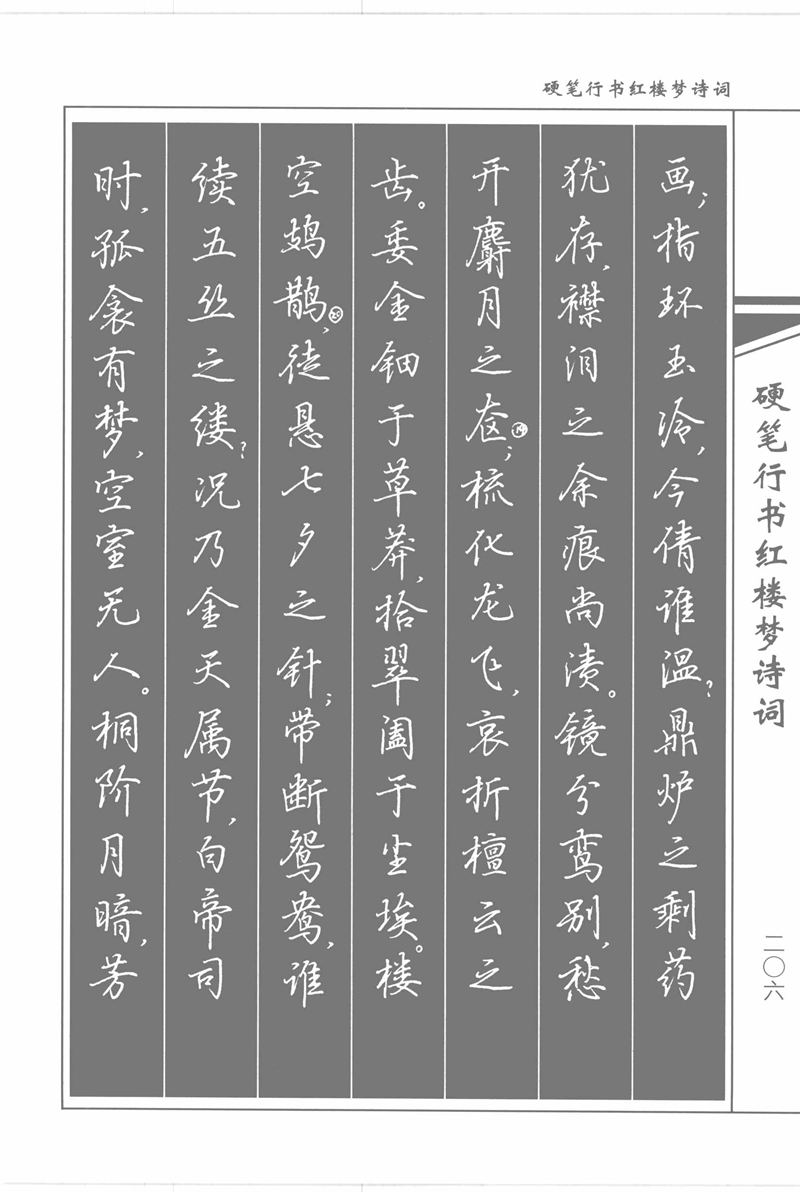 硬笔行书红楼梦诗词
画；指环玉冷，今倩谁温？鼎炉之剩药
犹存，襟泪之余痕尚渍。镜分鸾别，愁
开麝月之奁；梳化龙飞，哀折檀云之
齿。委金钿于草莽，拾翠盍于尘埃。楼
空鳷鹊，徒悬七夕之针；带断鸳鸯，谁
续五丝之缕？况乃金天属节，白帝司
时，孤衾有梦，空室无人。桐阶月暗，芳
硬笔行书红楼梦诗词
二〇六